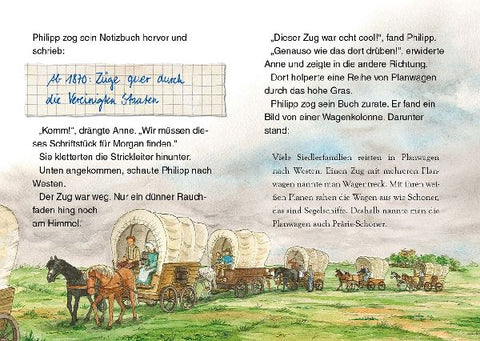 Philipp zog sein Notizbuch hervor und
schrieb:
Ab 1870: Züge quer durch
die Vereinigten Staaten
„Komm!“, drängte Anne. „Wir müssen die-
ses Schriftstück für Morgan finden.“
Sie kletterten die Strickleiter hinunter.
Unten angekommen, schaute Philipp nach
Westen.
Der Zug war weg. Nur ein dünner Rauch-
faden hing noch
am Himmel.
„Dieser Zug war echt cool!“, fand Philipp.
„Genauso wie das dort drüben!“, erwiderte
Anne und zeigte in die andere Richtung.
Dort holperte eine Reihe von Planwagen
durch das hohe Gras.
Philipp zog sein Buch zurate. Er fand ein
Bild von einer Wagenkolonne. Darunter
stand:
Viele Siedlerfamilien reisten in Planwagen
nach Westen. Einen Zug mit mehreren Plan-
wagen nannte man Wagentreck. Mit ihren wei-
ßen Planen sahen die Wagen aus wie Schoner,
das sind Segelschiffe. Deshalb nannte man die
Planwagen auch Prärie-Schoner.